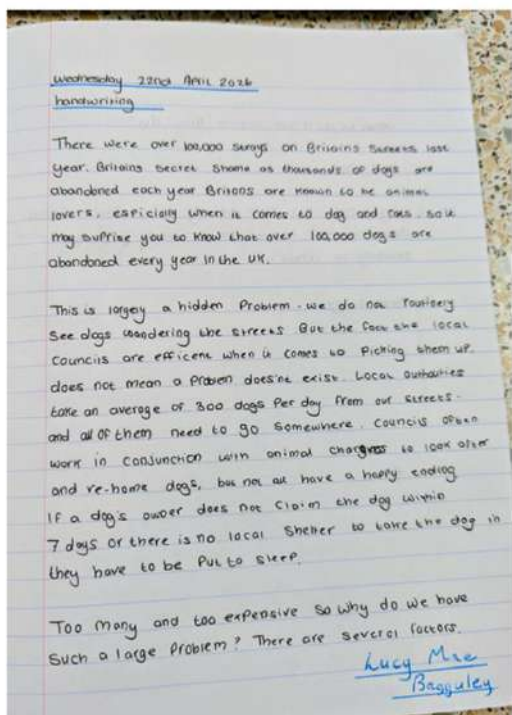 Wednesday 22nd April 2026
handwriting
There were over 100,000 strays on Britains streets last
year. Britains secret shame as thousands of dogs are
abandoned each year Britons are known to be animal
lovers, espicially when it comes to dog and cats. so it
may suprise you to know that over 100,000 dogs are
abandoned every year in the UK.
This is largely a hidden Problem. we do not routinely
see dogs wandering the streets But the fact the local
Councils are efficent when it comes to Picking them up.
does not mean a problem doesn't exist. Local authorities
take an average of 300 dogs Per day from our streets.
and all of them need to go somewhere. Councils often
work in conjunction with animal to look after
and re-home dogs, but not all have a happy ending
If a dog's owner does not claim the dog within
7 days or there is no local Shelter to take the dog in
they have to be Put to sleep.
Too many and too expensive so why do we have
such a large Problem? There are several factors.
Lucy Mae
Bagguley